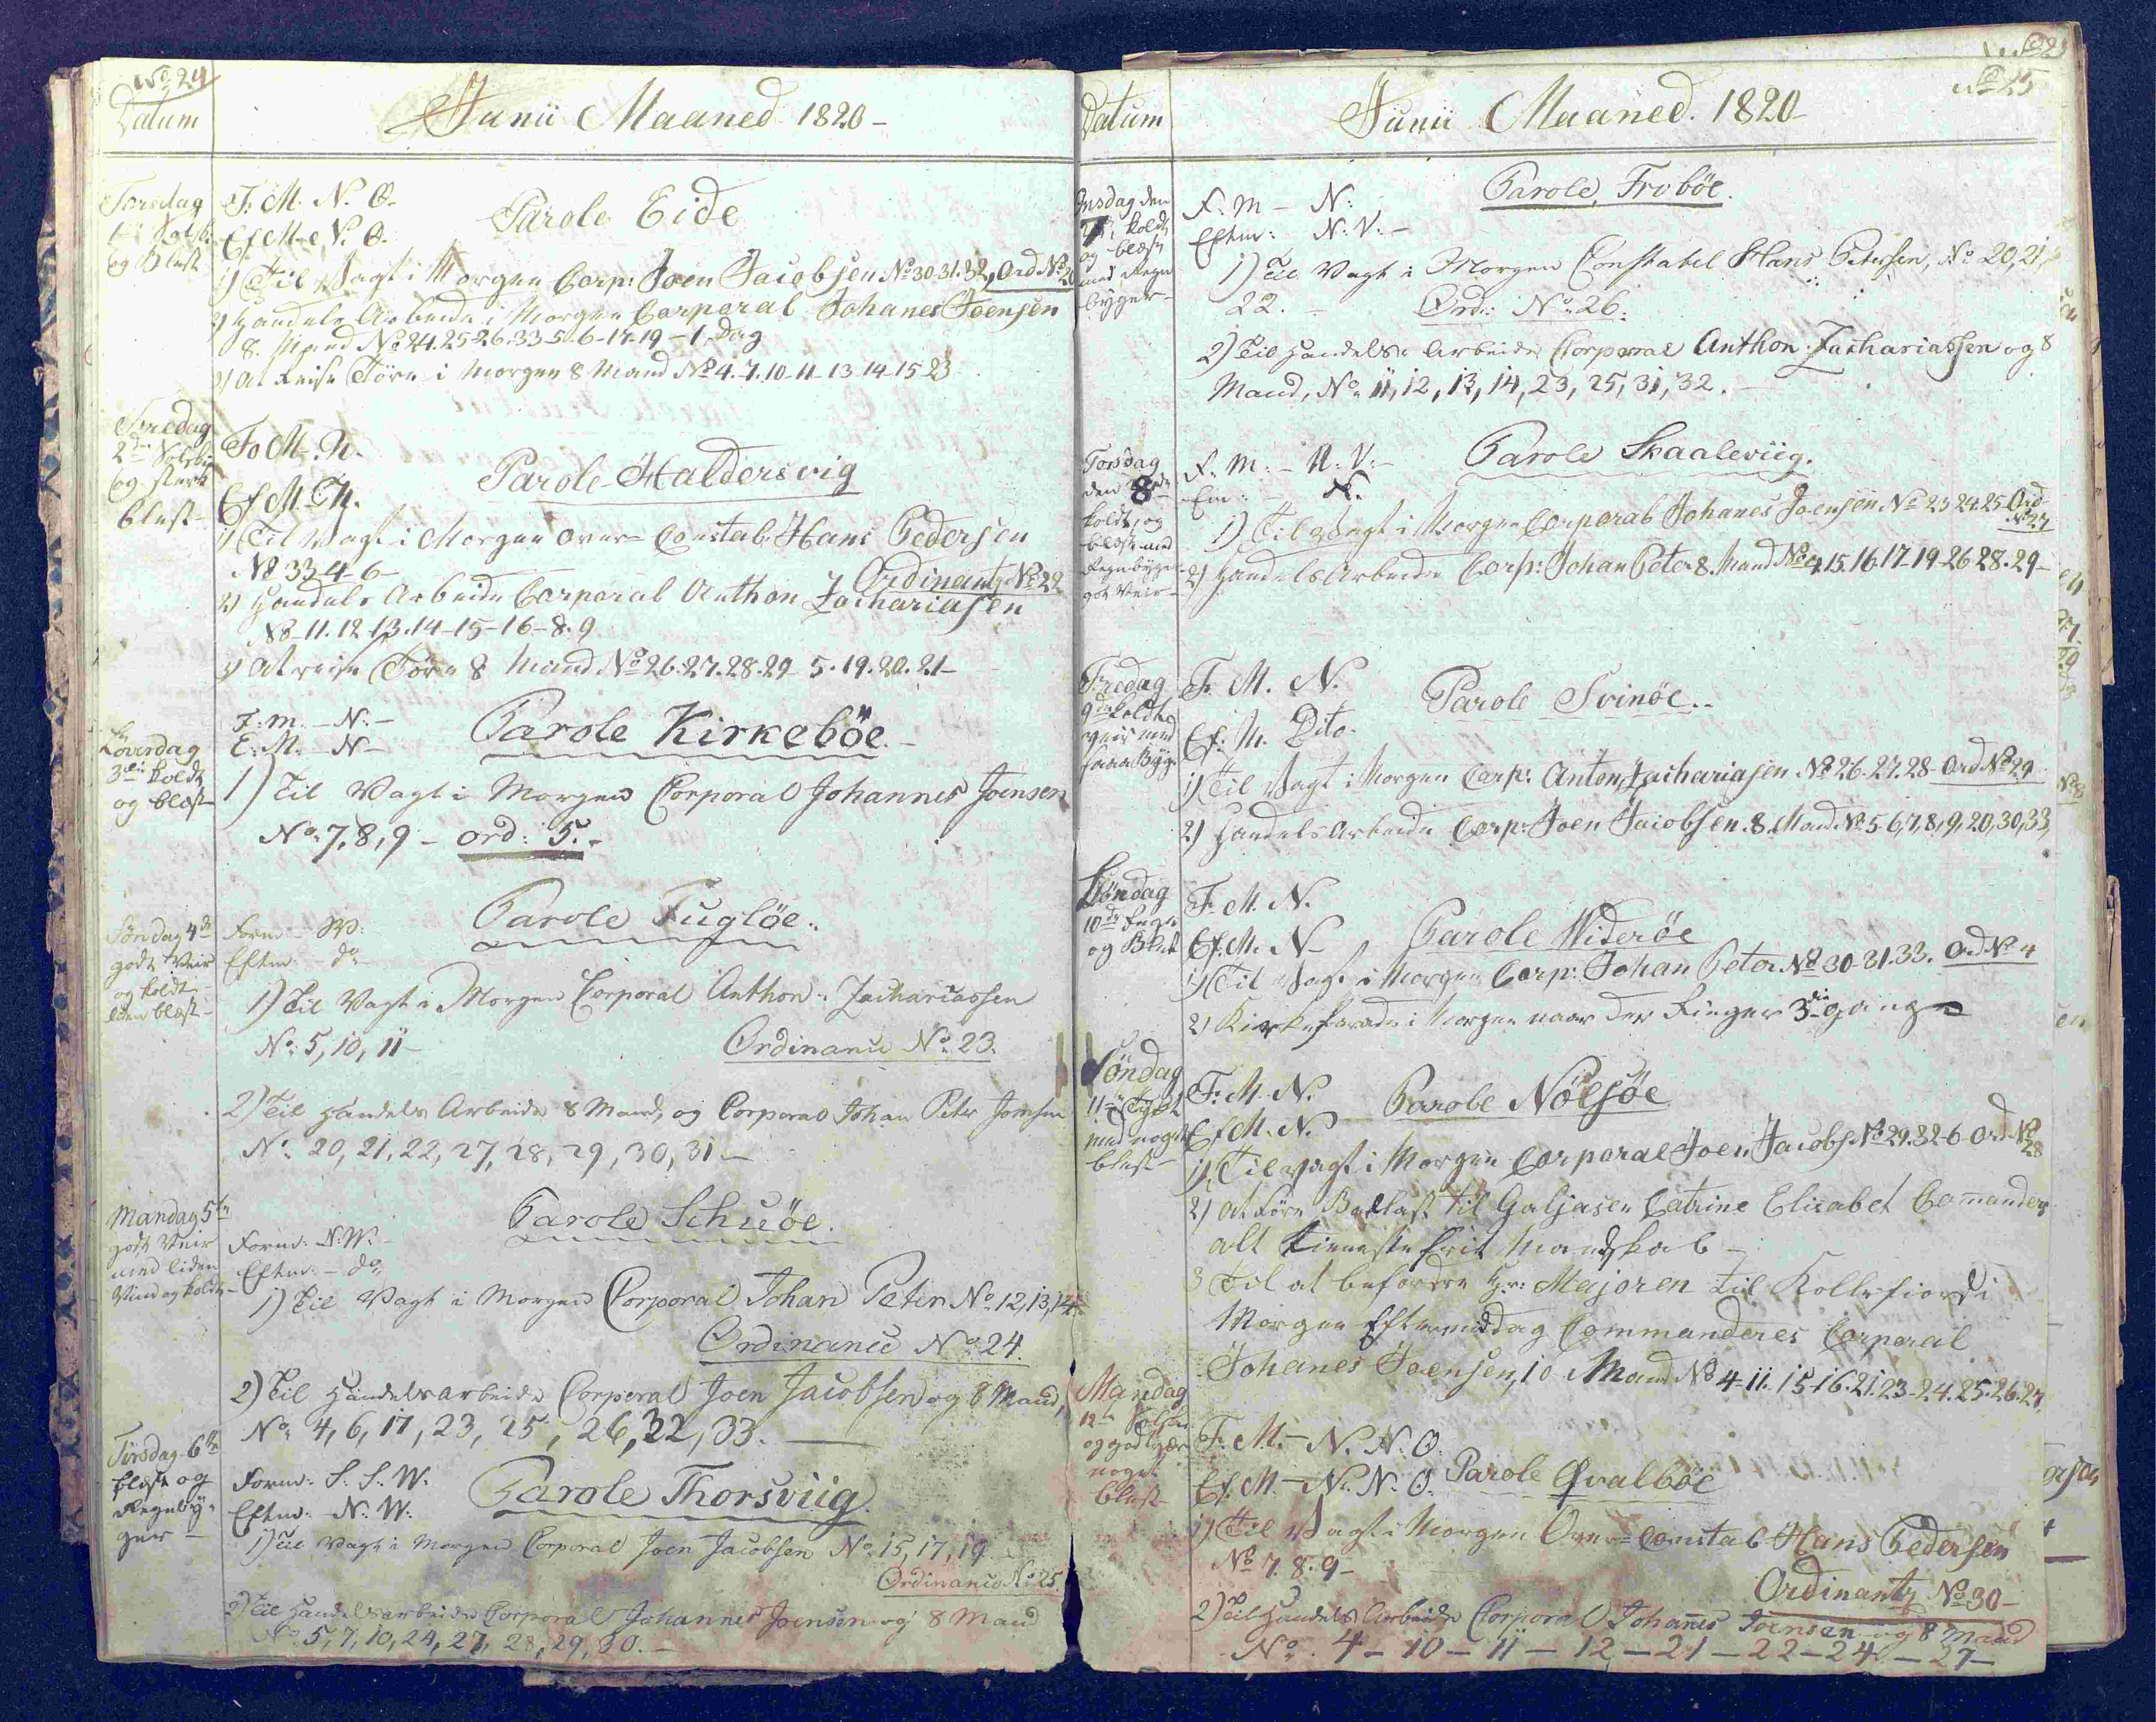 No 24
Datum
Junii Maaned 1820 -
Torsdag
1ste Solsk.
og Blæst
F: M. N. O.
Ef M - N. O.
Parole Eide
1) Til Vagt i Morgen Corp: Joen Jacobsen No 30 31. 32, Ord No 20
2) Handels Arbeide i Morgen Corporal Johanes Joensen
8. Mand No 24. 25-26. 33-5. 6-17-19 - 1. Dag
3) At Reise Törv i Morgen 8 Mand No 4. 7. 10-11-13-14-15 23
Fredag
2den Solsk.
og stærk
blæst -
Fo M. N.
Ef M. N.
Parole Haldersvig
1) Til Vagt i Morgen Over = Constab: Hans Pedersen
No 33 4-6-
Ordinantz No 22
2) Handels Arbeide Corporal Anthon Zachariasen
No 11. 12-13. 14-15-16-8. 9
3) At reise Törv 8 Mand No 26. 27. 28. 29- 5. 19. 20. 21-
Løverdag
3die koldt
og blæst
F: m. - N: -
E: M. - N -
Parole Kirkebøe. -
1) Til Vagt i Morgen Corporal Johannes Joensen
No: 7, 8, 9 - ord: 5. -
Søndag 4de
godt Veir
og koldt
liden blæst -
Form - W:
Eftm: - do
Parole Fugløe.
1) Til Vagt i Morgen Corporal Anthon: Zachariassen
No: 5, 10, 11 -
Ordinance No: 23.
2) Til Handels Arbeide 8 Mand, og Corporal Johan Peter Joensen
No: 20, 21, 22, 27, 28, 29, 30, 31 -
Mandag 5te
godt Veir
med liden
Vind og koldt -
Form: N: W: -
Eftm: - do
Parole Schuøe.
1) Til Vagt i Morgen Corporal Johan Peter No: 12, 13, 14.
Ordinance No 24.
2) Til Handelsarbeide Corporal Joen Jacobsen og 8 Mand,
No: 4, 6, 17, 23, 25, 26, 32, 33.
Tirsdag 6te
blæst og
Regnby-
ger -
Form: S. S. W.
Eftm: - N: W:
Parole Thorsviig.
1) Til Vagt i Morgen Corporal Joen Jacobsen No: 15, 17, 19
Ordinance No 25.
2) Til Handelsarbeide Corporal Johannes Joensen og 8 Mand
No 5, 7, 10, 24, 27, 28, 29, 30. -
No 25
Datum
Junii Maaned. 1820 -
Onsdag den
7de koldt
og blæst
med Regn
byger -
F: M - N:
Eftm: N: V: -
Parole, Frobøe.
1) Til Vagt i Morgen Constabel Hans Petersen, No 20, 21,
22. - Ord: No 26.
2) Til Handels Arbeide Corporal Anthon Zachariassen og 8
Mand, No 11, 12, 13, 14, 23, 25, 31, 32.
Torsdag
den 8de
koldt, og
blæst med
Regnbyger
got Veir -
F: M: - N: V: -
Em: - N.
Parole Skaaleviig.
1) Til Vagt i Morgen Corporal Johanes Joensen No 23 24. 25 Ord
No 27
2) Handels Arbeide Corp: Johan Peter 8. Mand No 4. 15. 16. 17-19-26 28. 29 -
Fredag
9de koldt
Veir med
Byge
F. M. N.
Ef: M. Dito.
Parole Svinöe. -
1) Til Vagt i Morgen Corp: Anton Zachariasen No 26. 27. 28 - Ord No 29
2) Handels Arbeide Corp: Joen Jacobsen. 8. Mand. No 5-6, 7, 8, 9, 20, 30, 33,
Löndag
10de Regn
og Blæst
F. M. N.
Ef. M. N
Parole Widerøe
1) Til Vagt i Morgen Corp: Johan Peter. No 30-31. 33. Ord No 4
2) Kirke Parade i Morgen naar der Ringes 3die gange
Søndag
11te Tykt
med noget
blæst -
F: M. N.
Ef M. N.
Parole Nölsöe
1) Til Vagt i Morgen Corporal Joen Jacobs: No 29. 32-6 Ord No
28
2) At före Ballast til Galjasen Catrine Elisabet Comanderes
alt tienestefrit Mandskab -
3 Til at befordre Hr: Majoren til Kollefiord i
Morgen Eftermiddag Commanderes Corporal
Johanes Joensen, 10 Mand No 4-11. 15-16. 21. 23-24. 25. 26. 27,
Mandag
12te Solskin
og godt Vær
noget
blæst -
F. M. - N. N. O.
Ef. M. - N. N. O.
Parole Qvalböe
1) Til Vagt i Morgen Over = Constab: Hans Pedersen
No 7. 8. 9 -
Ordinantz No 30 -
2) Til Handels Arbeide Corporal Johanes Joensen og 8 Mand
No. 4 - 10 - 11 - 12 - 21 - 22 - 24 - 27 -